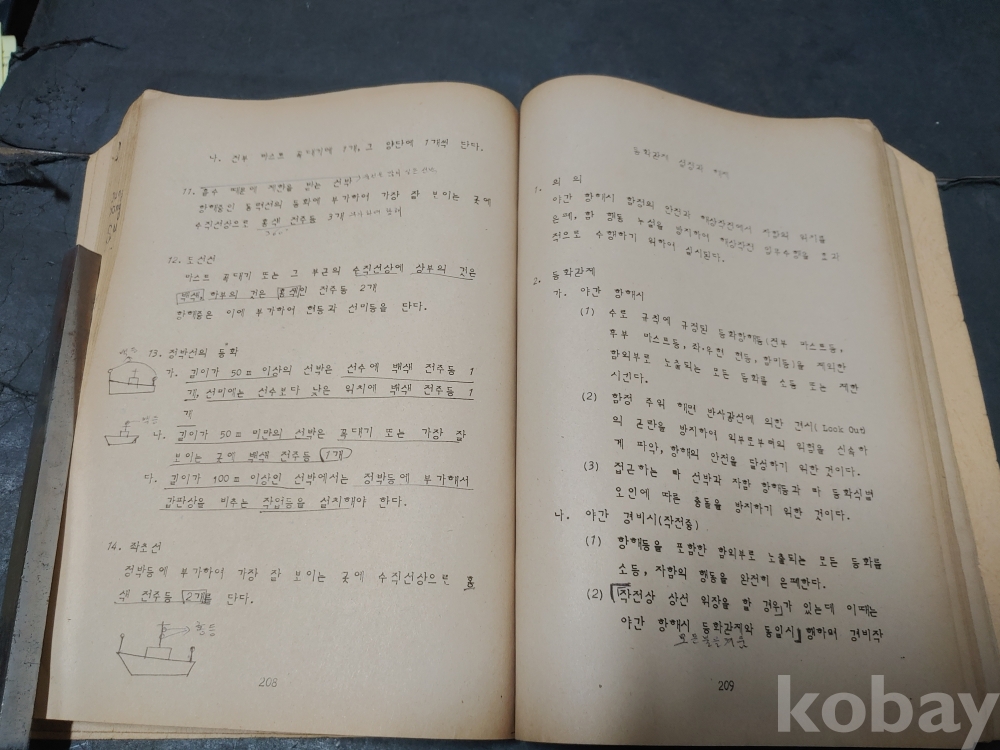 나. 전부 마스트 꼭대기에 1개, 그 양단에 1개씩 단다.
11. 흘수 때문에 제한을 받는 선박
항해중인 동력선의 등화에 부가하여 가장 잘 보이는 곳에
수직선상으로 홍색 전주등 3개
12. 도선선
마스트 꼭대기 또는 그 부근의 수직선상에 상부의 것은
백색, 하부의 것은 홍색인 전주등 2개
항해중은 이에 부가하여 현등과 선미등을 단다.
13. 정박선의 등화
가. 길이가 50m 이상의 선박은 선수에 백색 전주등 1
개, 선미에는 선수보다 낮은 위치에 백색 전주등 1
개
나. 길이가 50m 미만의 선박은 꼭대기 또는 가장 잘
보이는 곳에 백색 전주등 1개
다. 길이가 100m 이상인 선박에서는 정박등에 부가해서
갑판상을 비추는 작업등을 설치해야 한다.
14. 좌초선
정박등에 부가하여 가장 잘 보이는 곳에 수직선상으로 홍
색 전주등 2개를 단다.
홍등
208
등화관제
1.
야간 항해시 함정의 안전과 해상작전에서 자함의 위치를
은폐, 함 행동 누설을 방지하여 해상작전 임무수행을 효과
적으로 수행하기 위하여 실시된다.
2. 등화관제
가. 야간 항해시
(1) 수로 규칙에 규정된 등화항해등(전부 마스트등,
후부 마스트등, 좌·우현 현등, 항미등)을 제외한
함외부로 노출되는 모든 등화를 소등 또는 제한
시킨다.
(2) 함정 주위 해면 반사광선에 의한 견시(Look Out)
의 곤란을 방지하여 외부로부터의 위험을 신속하
게 파악, 항해의 안전을 달성하기 위한 것이다.
(3) 접근하는 타 선박과 자함 항해등과 타 등화식별
오인에 따른 충돌을 방지하기 위한 것이다.
나. 야간 경비시(작전중)
(1) 항해등을 포함한 함외부로 노출되는 모든 등화를
소등, 자함의 행동을 완전히 은폐한다.
(2) 작전상 상선 위장을 할 경우가 있는데 이때는
야간 항해시 등화관제와 동일시 행하여 경비작
209
kobay